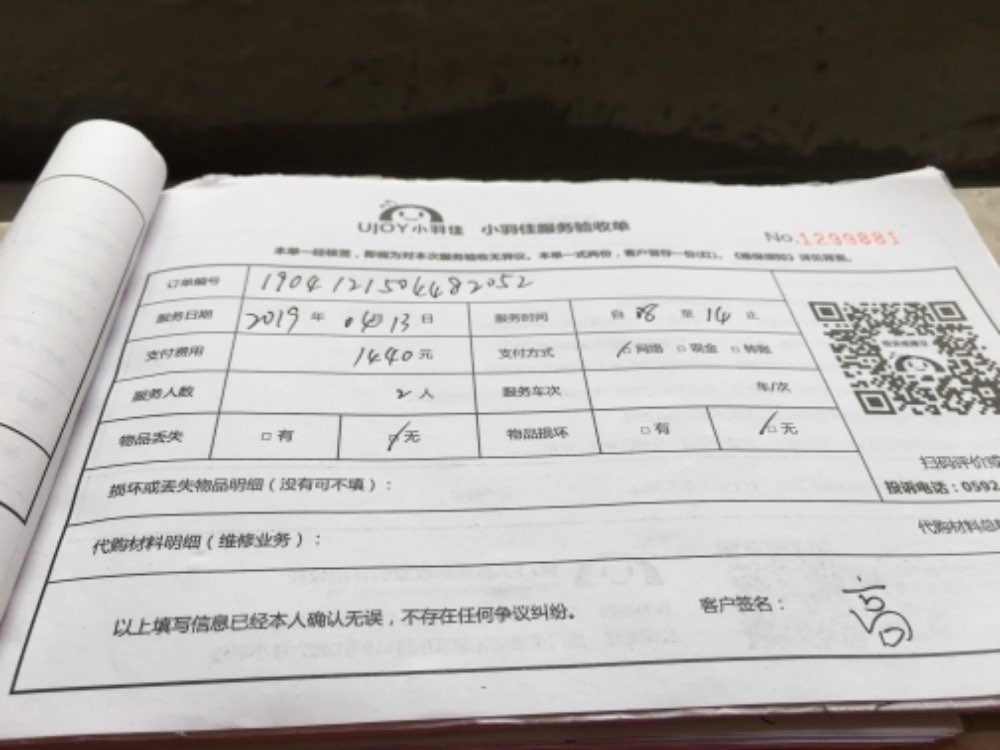 UJOY小羽佳 小羽佳服务验收单
No.1299881
本单一经核签，即视为对本次服务验收无异议。本单一式两份，客户留存一份(红)。《维保须知》详见背面。
订单编号 1904121504482052
服务日期 2019 年 04月 13 日 服务时间 自 08 至 14 止
支付费用 1440 元 支付方式 网络 □ 现金 □ 转账
服务人数 2 人 服务车次 车/次
物品丢失 □ 有 □ 无 物品损坏 □ 有 □ 无
扫码评价或
损坏或丢失物品明细（没有可不填）：
投诉电话：0592
代购材料明细（维修业务）：
代购材料总
以上填写信息已经本人确认无误，不存在任何争议纠纷。 客户签名：